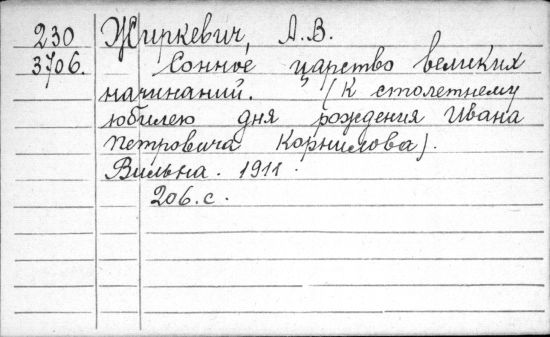 230 Жиркевич, А.В.
3706. Сонное царство великих
начинаний. (К столетнему
юбилею дня рождения Ивана
Петровича Корнилова).
Вильна. 1911.
206.с.